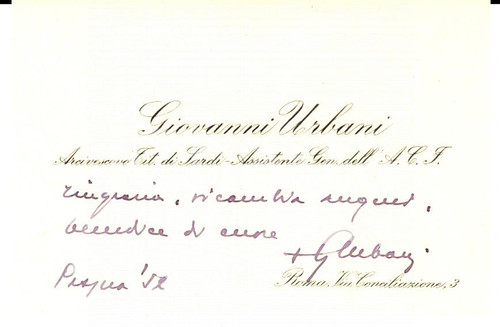 Giovanni Urbani
Arcivescovo Tit. di Sardi - Assistente Gen. dell' A. C. I.
ringrazia, ricambia auguri,
benedice di cuore
+ G Urbani
Pasqua '52
Roma, Via Conciliazione, 3